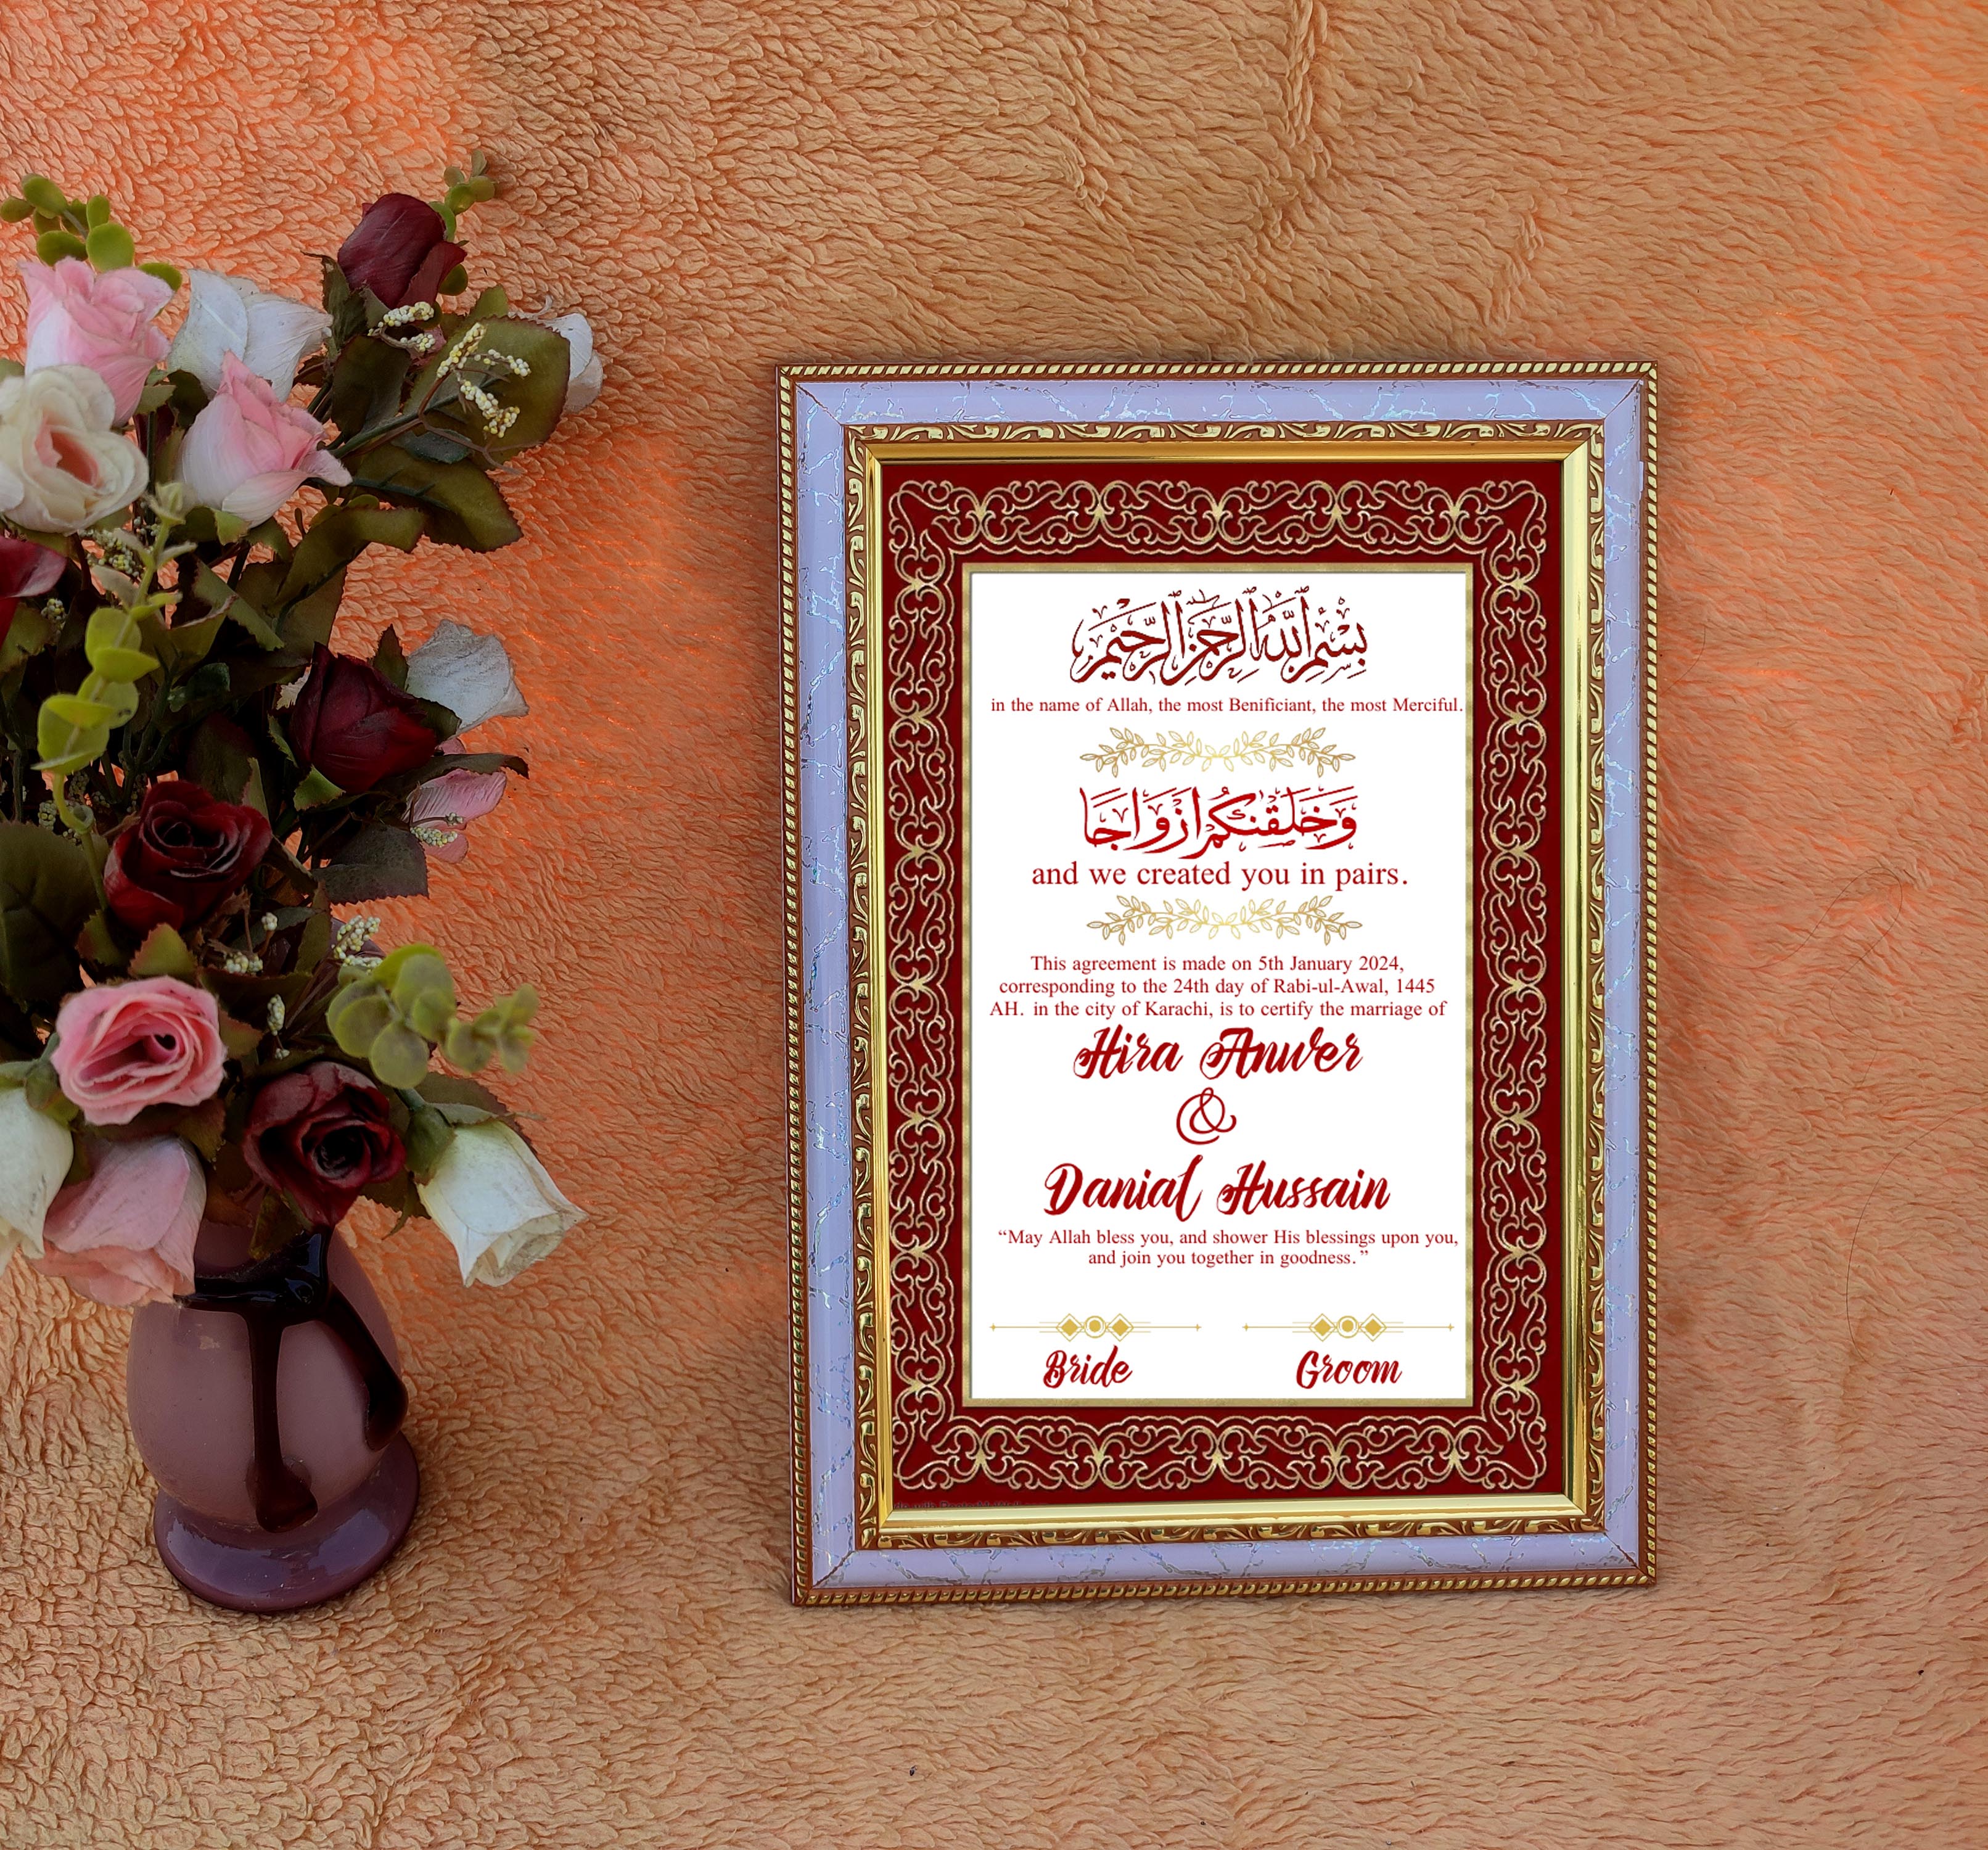 بِسْمِ ٱللَّهِ ٱلرَّحْمَٰنِ ٱلرَّحِيمِ
in the name of Allah, the most Benificiant, the most Merciful.
وَخَلَقْنٰكُمْ اَزْوَاجًا
and we created you in pairs.
This agreement is made on 5th January 2024,
corresponding to the 24th day of Rabi-ul-Awal, 1445
AH. in the city of Karachi, is to certify the marriage of
Hira Anwer
&
Danial Hussain
“May Allah bless you, and shower His blessings upon you,
and join you together in goodness.”
Bride Groom